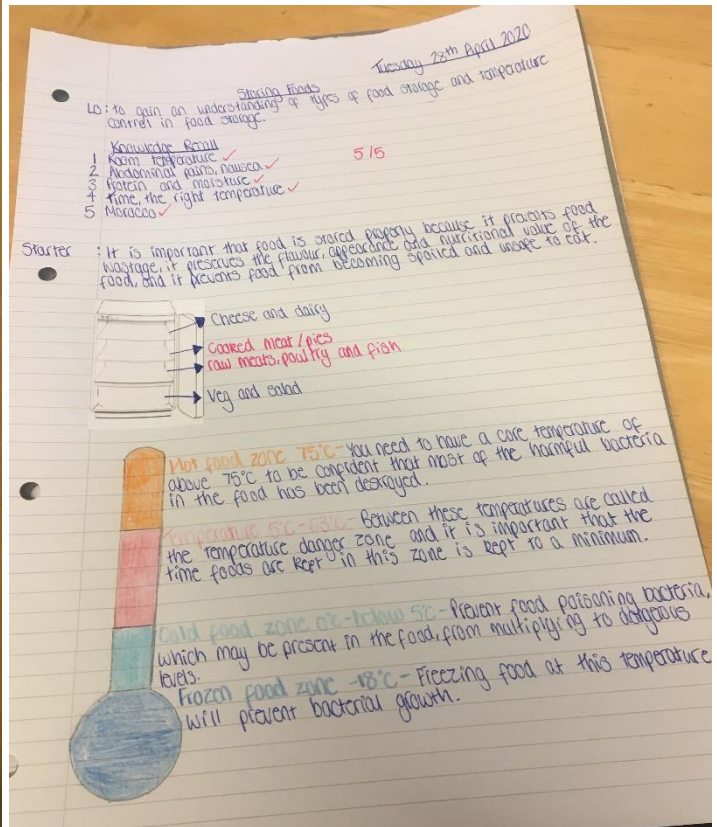 Tuesday 28th April 2020
Storing Foods
LO: to gain an understanding of types of food storage and temperature
control in food storage.
Knowledge Recall
1 Room temperature ✓
2 Abdominal pains, nausea ✓
3 Protein and moisture ✓
4 Time, the right temperature ✓
5 Morocco ✓
5/5
Starter : It is important that food is stored properly because it prevents food
wastage, it preserves the flavour, appearance and nutritional value of the
food, and it prevents food from becoming spoiled and unsafe to eat.
Cheese and dairy
Cooked meat/pies
raw meats, poultry and fish.
Veg and salad
Hot food zone 75°C - You need to have a core temperature of
above 75°C to be confident that most of the harmful bacteria
in the food has been destroyed.
Temperature 5°C-63°C - Between these temperatures are called
the temperature danger zone and it is important that the
time foods are kept in this zone is kept to a minimum.
Cold food zone 0°C-below 5°C - Prevent food poisoning bacteria,
which may be present in the food, from multiplying to dangerous
levels.
Frozen food zone -18°C - Freezing food at this temperature
will prevent bacterial growth.